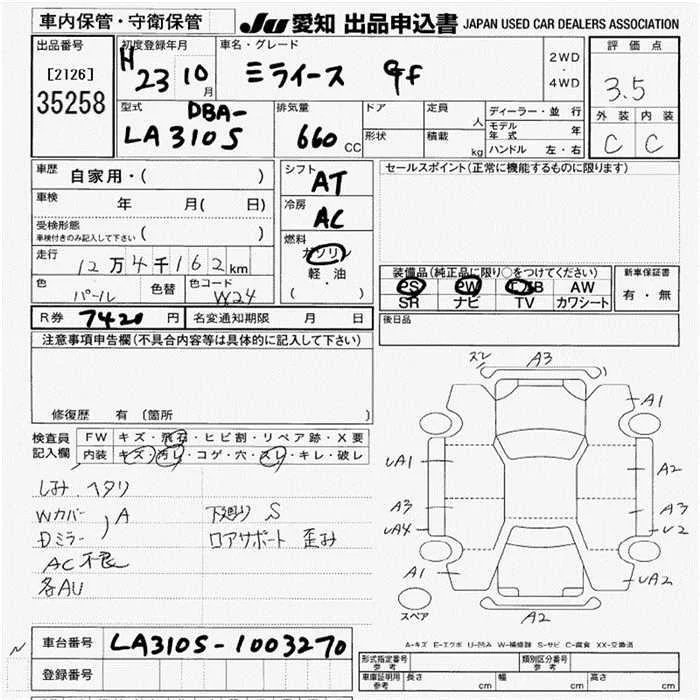 車内保管・守衛保管
JU 愛知 出品申込書 JAPAN USED CAR DEALERS ASSOCIATION
出品番号
[2126]
35258
初度登録年月
H 23 10 月
車名・グレード
ミライース Gf
2WD
・
4WD
評価点
3.5
外装 内装
C C
型式
DBA-
LA310S
排気量
660 CC
ドア
定員 人
形状
積載 kg
ディーラー・並行
モデル年式 年
ハンドル 左・右
車歴
自家用・( )
車検 年 月( 日)
受検形態
車検付きのみ記入して下さい ( )
走行
12万4千162km
色 パール
色替
色コード W24
シフト
AT
冷房
AC
燃料
ガソリン
軽・油
( ・ )
セールスポイント(正常に機能するものに限ります)
装備品(純正品に限り○をつけてください)
PS PW AW
SR ナビ TV カワシート
新車保証書
有・無
R券 7420 円
名変通知期限 月 日
後日品
注意事項申告欄(不具合内容等は具体的に記入して下さい)
修復歴 有 〔箇所 〕
検査員
記入欄
FW キズ・飛石・ヒビ割・リペア跡・X要
内装 キズ・汚レ・コゲ・穴・スレ・キレ・破レ
しみ ヘタリ
Wカバー
Dミラー
) A
AC不良
各AU
下廻り S
ロアサポート 歪み
スレ A3
A1
UA1
A2
A3
UA4
A3
U2
A1
UA2
A2
スペア
A-キズ E-エクボ U-凹み W-補修跡 S-サビ C-腐食 XX-交換済
車台番号 LA310S-1003270
登録番号
型式指定番号
参考
類別区分番号
参考
車庫証明用
参考
長さ cm
幅 cm
高さ cm